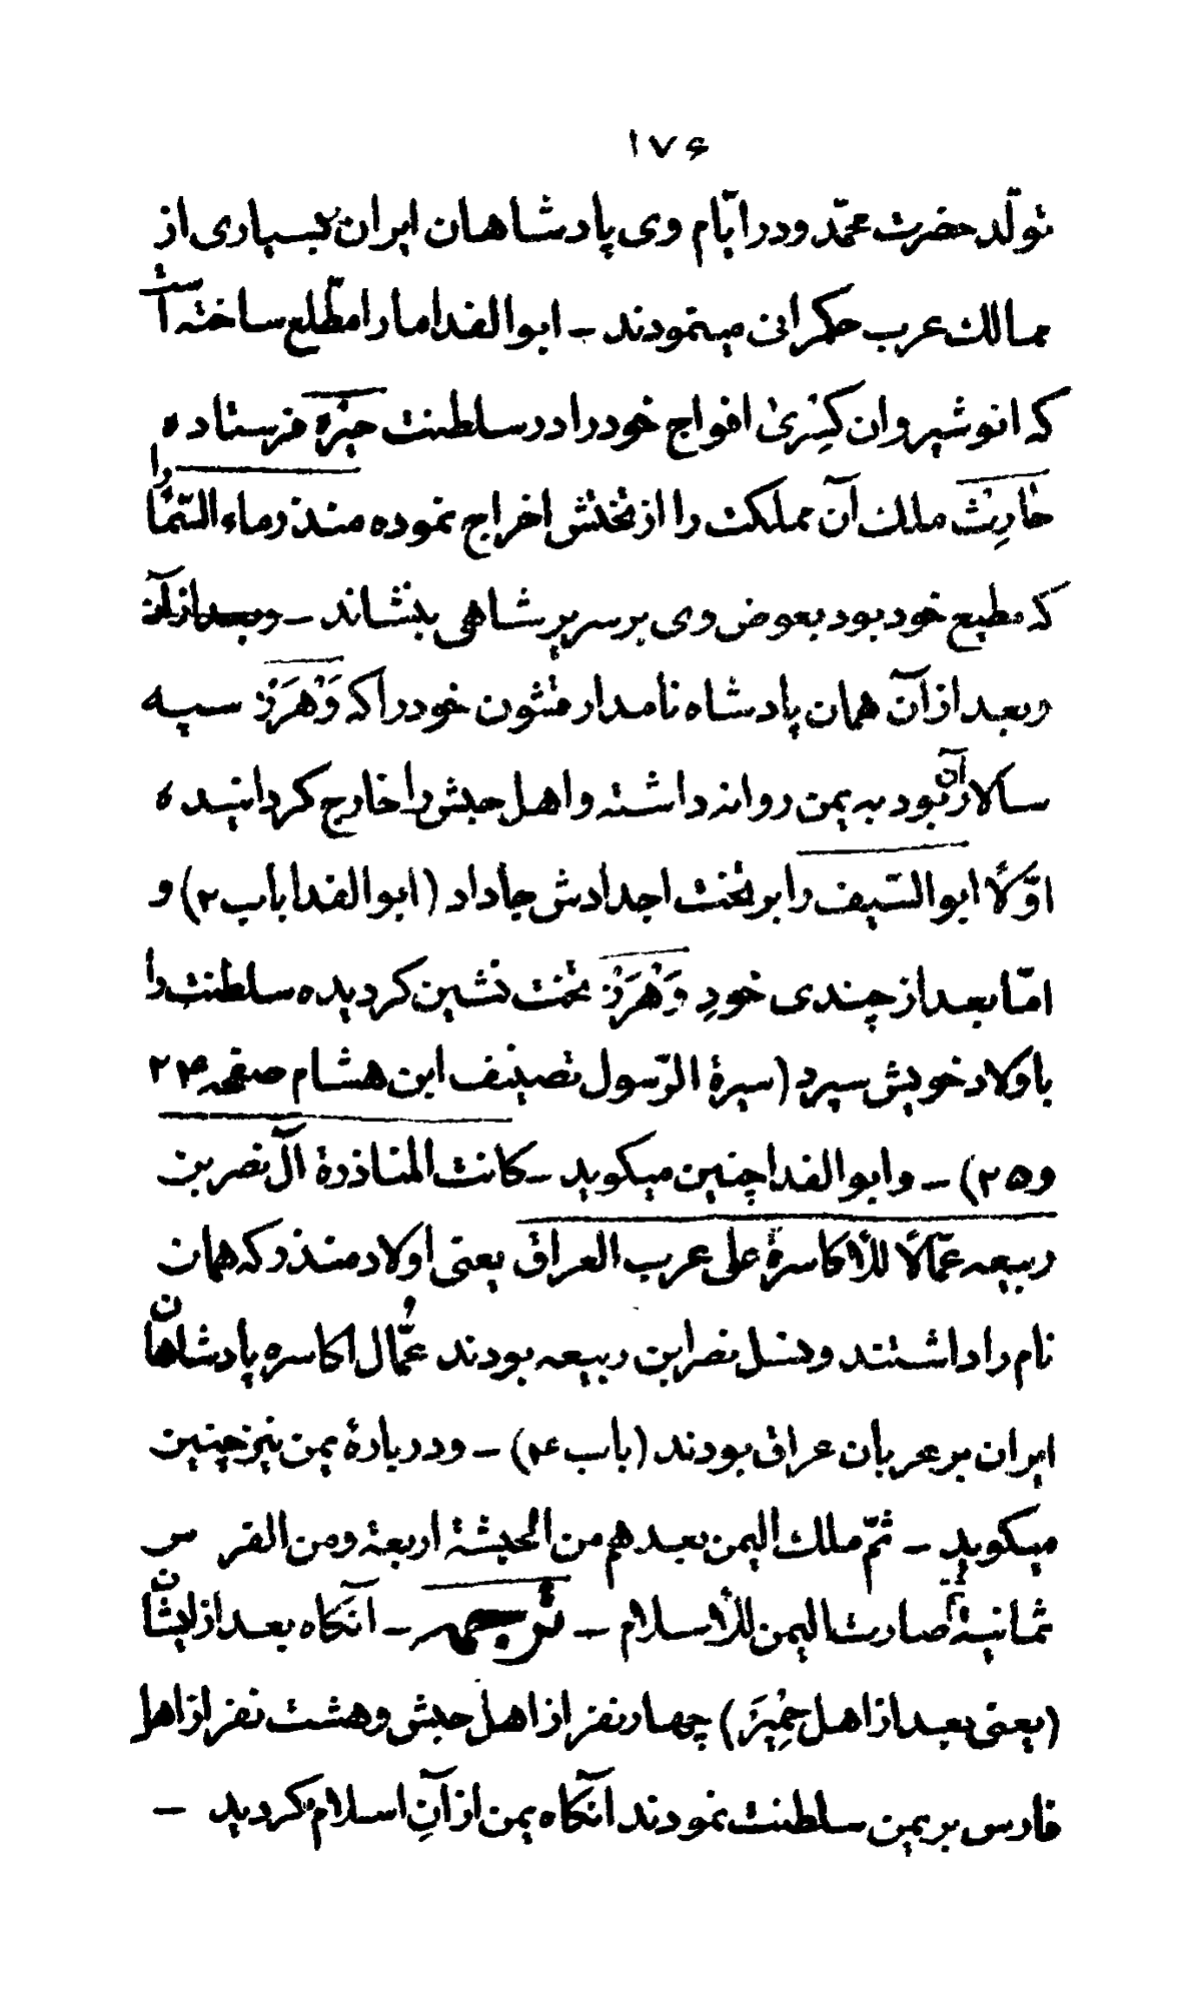 ۱۷۶
تولّد حضرت محمّد و در ایّام وی پادشاهان ایران بسیاری از
ممالک عرب حکمرانی مینمودند ــ ابوالفدا ما را مطّلع ساخته است
که انوشیروان کِسْریٰ افواج خود را در سلطنت حِیْرَه فرستاده
حٰارِثْ ملک آن مملکت را از تختش اخراج نموده منذر ماء السّمٰا را
که مطیع خود بود بعوض وی بر سریر شاهی بنشاند ــ وبعد از آن
وبعد از آن همان پادشاه نامدار قشون خود را که وَهْرَزْ سپه
سالار آن بود به یمن روانه داشته و اهل حبش را خارج کردانیده
اوّلاً ابوالسّیف را بر تخت اجدادش جا داد (ابوالفدا باب ۲) و
امّا بعد از چندی خودِ وَهْرَزْ تخت نشین کردیده سلطنت را
باولاد خویش سپرد (سیرة الرّسول تصنیف ابن هشام صفحه ۲۴
و ۲۵) ــ و ابوالفدا چنین میکوید ــ کانت المناذرة آل نصر بن
ربیعه عمّالاً للأکاسرة علی عرب العراق یعنی اولاد منذر که همان
نام را داشتند و نسل نصر ابن ربیعه بودند عُمّال اکاسره پادشاهان
ایران بر عربان عراق بودند (باب ۴) ــ و دربارهٔ یمن نیز چنین
میکوید ــ ثمّ ملک الیمن بعدهم من الحبشة اربعة ومن الفر س
ثمانیة ثم صارت الیمن للأسلام ــ ترجمه ــ آنکاه بعد از ایشان
(یعنی بعد از اهل حِمْیَر) چهار نفر از اهل حبش و هشت نفر از اهل
فارس بر یمن سلطنت نمودند آنکاه یمن از آنِ اسلام کردید ــ